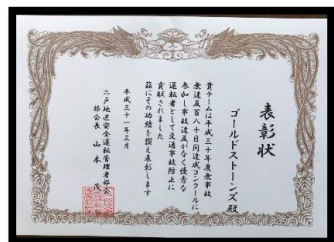 表彰状
ゴールドストーンズ殿
貴チームは平成三十年度無事故
無違反百八十日間達成コンクールに
参加し事故違反がなく優秀な
運転者として交通事故防止に
貢献されました
茲にその功績を讃え表彰します
平成三十一年三月
二戸地区安全運転管理者部会
部会長 山本